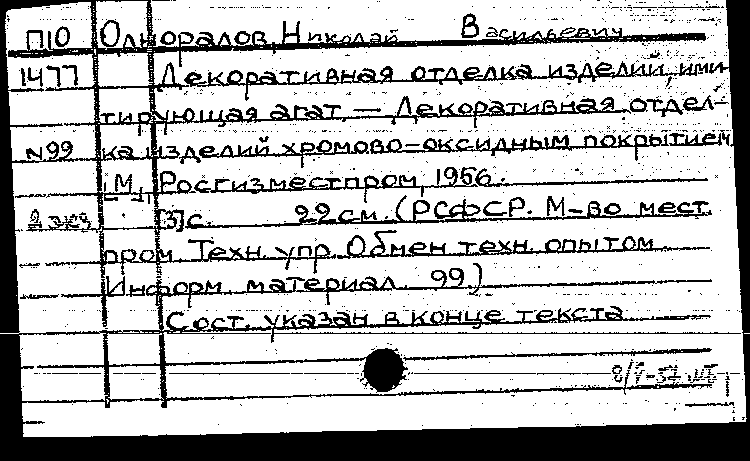 П10 Одноралов, Николай Васильевич
1477 Декоративная отделка изделий, ими-
тирующая агат. — Декоративная отдел-
N99 ка изделий хромово-оксидным покрытием
[М.], Росгизместпром, 1956.
2 экз [3] с. 22 см. (РСФСР. М-во мест.
пром. Техн. упр. Обмен техн. опытом
Информ. материал 99)
Сост. указан в конце текста
8/V-57